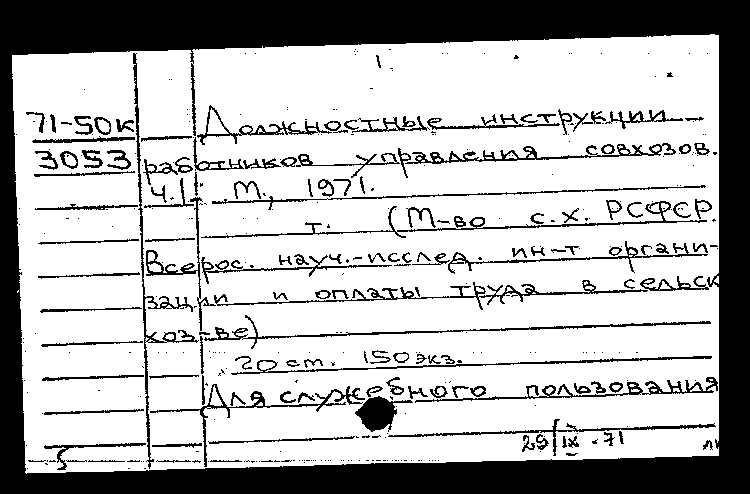 1
71-50к Должностные инструкции
3053 работников управления совхозов.
Ч.1. М., 1971.
т. (М-во с.х. РСФСР.
Всерос. науч.-исслед. ин-т органи-
зации и оплаты труда в сельск
хоз-ве)
20 см. 150 экз.
Для служебного пользования
29/IX.71